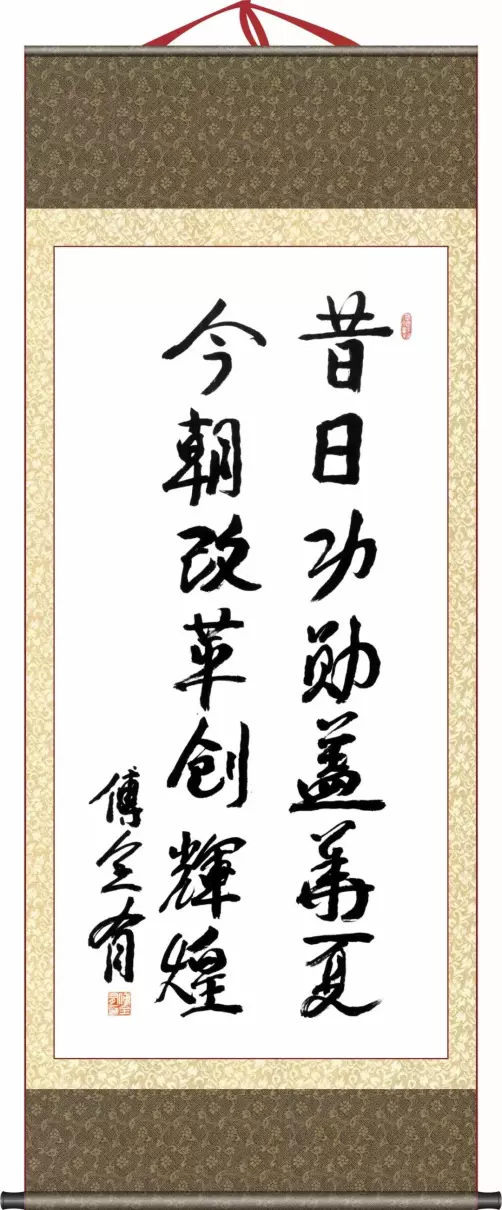 昔日功勋盖華夏
今朝改革创輝煌
傅全有